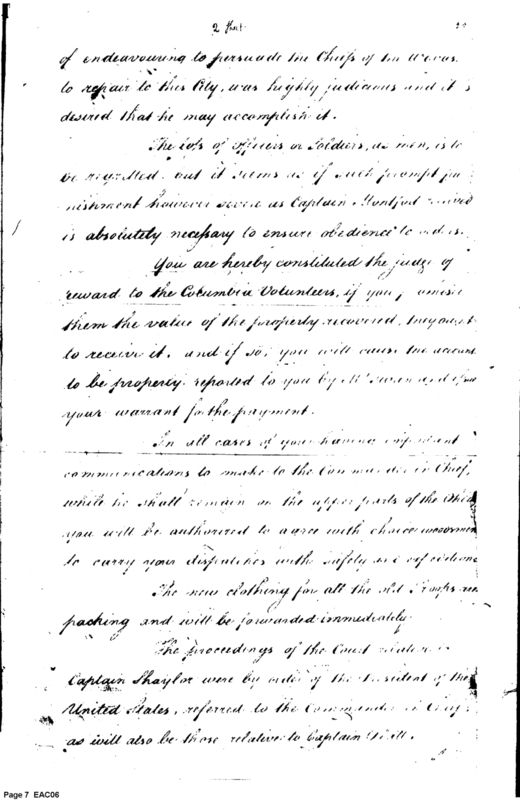 of endeavouring to persuade the Chiefs of the
to repair to this City, was highly judicious and it is
desired that he may accomplish it.
The loss of officers or Soldiers, as men, is to
be regretted but it seems as if such prompt pu
nishment however severe as Captain Montfort received
is absolutely necessary to ensure obedience to orders.
You are hereby constituted the judge of
reward to the Columbia Volunteers, if you promise
them the value of the property recovered, they ought
to receive it, and if so, you will cause the account
to be properly reported to you by Mr Swan and issue
your warrant for the payment.
In all cases of your having important
communications to make to the Commander in Chief,
while he shall remain on the upper parts of the Ohio
you will be authorized to agree with choice woodsmen
to carry your dispatches with safety and expedition
The new clothing for all the old Troops are
packing and will be forwarded immediately.
The proceedings of the Court relative to
Captain Shaylor were by order of the President of the
United States, referred to the Commander in Chief,
as will also be those relative to Captain
Page 7 EAC06